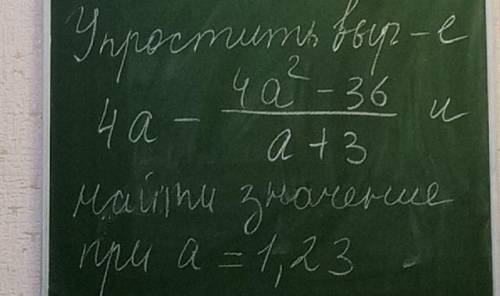 Упростить выр-е
4a - (4a² - 36)/(a + 3) и
найти значение
при a = 1,23